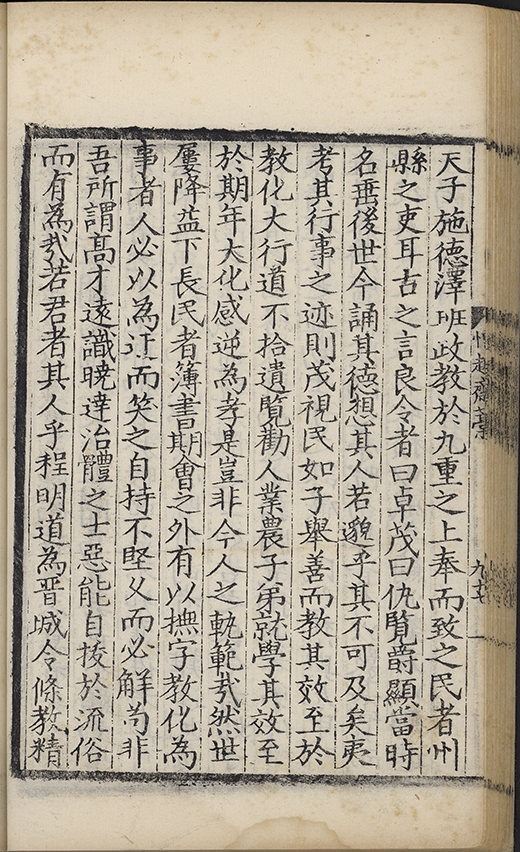 天子施德澤班政教於九重之上奉而致之民者州
縣之吏耳古之言良令者曰卓茂曰仇覽爵顯當時
名垂後世今誦其德想其人若邈乎其不可及矣夷
考其行事之迹則茂視民如子舉善而教其效至於
教化大行道不拾遺覽勸人業農子弟就學其效至
於期年大化感逆為孝是豈非今人之軌範㢤然世
屢降益下長民者簿書期會之外有以撫字教化為
事者人必以為迂而笑之自持不堅久而必解苟非
吾所謂高才遠識曉達治體之士惡能自拔於流俗
而有為㢤若君者其人乎程明道為晋城令條教精